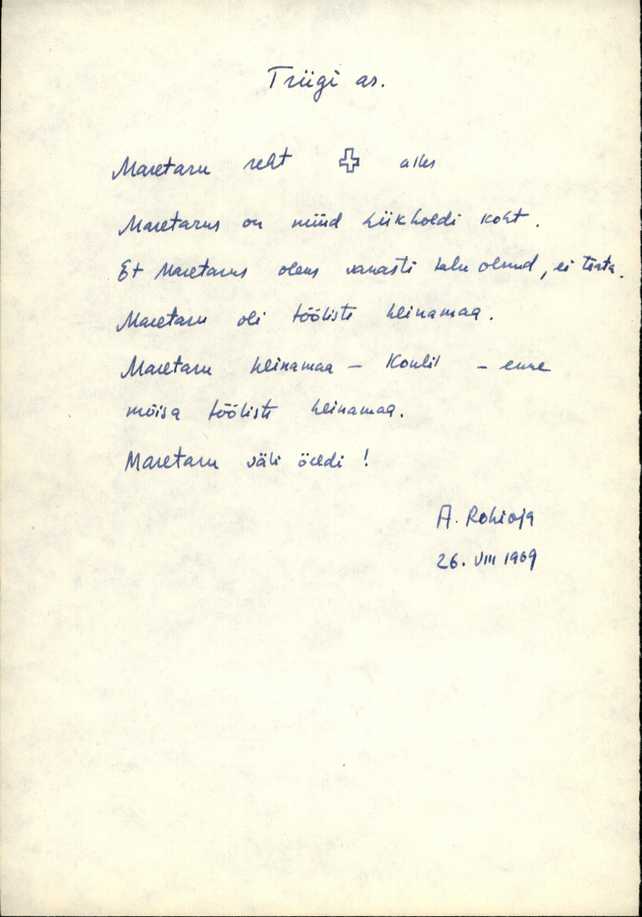 Triigi as.
Maretaru reht alles
Maretarus on nüüd koht.
Et Maretarus oleks vanasti talu olnud, ei teata.
Maretaru oli tööliste heinamaa.
Maretaru heinamaa – – enne
mõisa tööliste heinamaa.
Maretaru väli öeldi!
A. Rohioja
26. VIII 1969